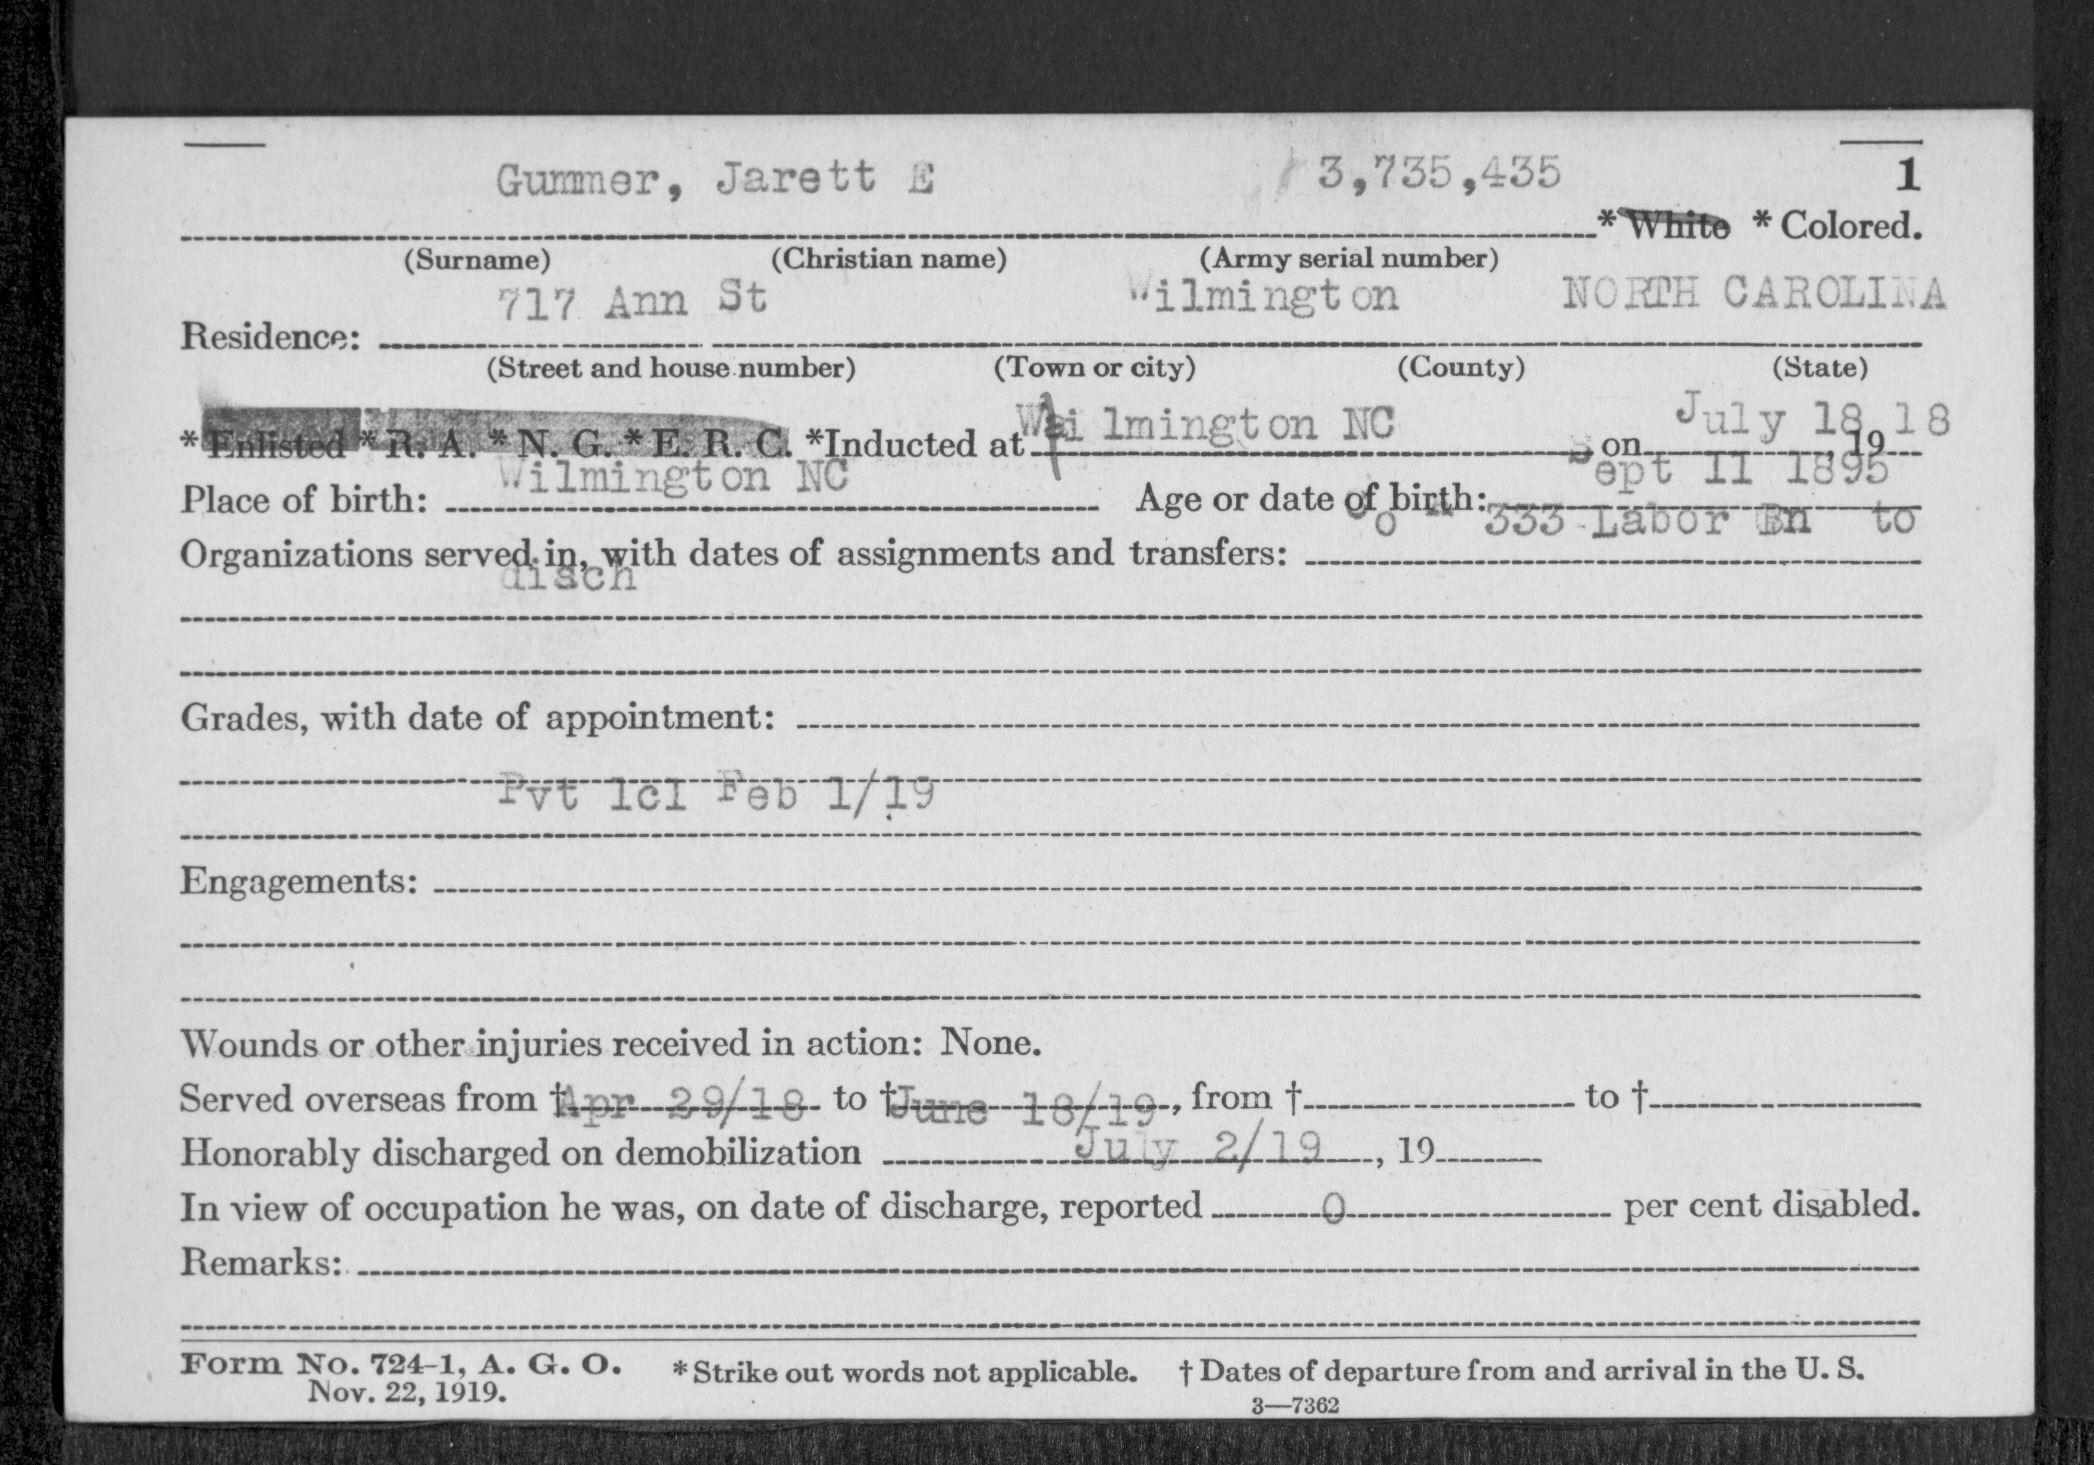 Gummer, Jarett E 3,735,435 1
* White * Colored.
(Surname) (Christian name) (Army serial number)
717 Ann St Wilmington NORTH CAROLINA
Residence:
(Street and house number) (Town or city) (County) (State)
* Enlisted * R. A. * N. G. * E. R. C. *Inducted at Wilmington NC on July 18, 1918
Place of birth: Wilmington NC Age or date of birth: Sept 11 1895
Organizations served in, with dates of assignments and transfers: Co A 333 Labor Bn to
disch
Grades, with date of appointment:
Pvt 1cl Feb 1/19
Engagements:
Wounds or other injuries received in action: None.
Served overseas from † Apr 29/18 to † June 18/19, from † to †
Honorably discharged on demobilization July 2/19, 19
In view of occupation he was, on date of discharge, reported 0 per cent disabled.
Remarks:
Form No. 724-1, A. G. O. * Strike out words not applicable. † Dates of departure from and arrival in the U. S.
Nov. 22, 1919. 3—7362